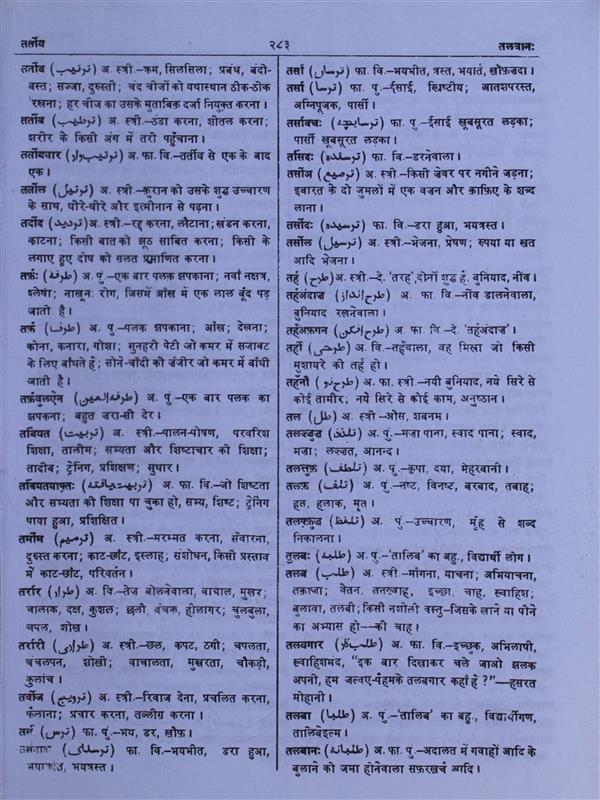 तर्तीय
२८३
तलवानः
तर्तीब (ترتیب) अ. स्त्री.–क्रम, सिलसिला; प्रबंध, बंदो-
बस्त; सज्जा, दुरुस्ती; चंद चीजों को यथास्थान ठीक-ठीक
रखना; हर चीज का उसके मुताबिक़ दर्जा नियुक्त करना।
तर्तीब (ترطیب) अ. स्त्री.–ठंडा करना, शीतल करना;
शरीर के किसी अंग में तरी पहुँचाना।
तर्तीबवार (ترتیب وار) अ. फा. वि.–तर्तीब से एक के बाद
एक।
तर्तील (ترتیل) अ. स्त्री.–क़ुरान को उसके शुद्ध उच्चारण
के साथ, धीरे-धीरे और इत्मीनान से पढ़ना।
तर्दीद (تردید) अ. स्त्री.–रद्द करना, लौटाना; खंडन करना,
काटना; किसी बात को झूठ साबित करना; किसी के
लगाए हुए दोष को ग़लत प्रमाणित करना।
तर्फ़ः (طرفه) अ. पुं.–एक बार पलक झपकाना; नवाँ नक्षत्र,
श्लेषा; नाखूनः रोग, जिसमें आँख में एक लाल बूँद पड़
जाती है।
तर्फ़ (طرف) अ. पुं.–पलक झपकाना; आँख; देखना;
कोना, कनारा, गोशा; सुनहरी पेटी जो कमर में सजावट
के लिए बाँधते हैं; सोने-चाँदी की जंजीर जो कमर में बाँधी
जाती है।
तर्फ़तुलऐन (طرفة العین) अ. पुं.–एक बार पलक का
झपकना; बहुत जरा-सी देर।
तर्बियत (تربیت) अ. स्त्री.–पालन-पोषण, परवरिश
शिक्षा, तालीम; सभ्यता और शिष्टाचार की शिक्षा;
तादीब; ट्रेनिंग, प्रशिक्षण; सुधार।
तर्बियतयाफ़्तः (تربیت یافته) अ. फा. वि.–जो शिष्टता
और सभ्यता की शिक्षा पा चुका हो, सभ्य, शिष्ट; ट्रेनिंग
पाया हुआ, प्रशिक्षित।
तर्मीम (ترمیم) अ. स्त्री.–मरम्मत करना, सँवारना,
दुरुस्त करना; काट-छाँट, इस्लाह; संशोधन, किसी प्रस्ताव
में काट-छाँट, परिवर्तन।
तर्रार (طرار) अ. वि.–तेज बोलनेवाला, वाचाल, मुखर;
चालाक, दक्ष, कुशल; छली वंचक, हीलागर; चुलबुला,
चपल, शोख।
तर्रारी (طراری) अ. स्त्री.–छल, कपट, ठगी; चपलता,
चंचलपन, शोखी; वाचालता, मुखरता, चौकड़ी,
कुलांच।
तर्वीज (ترویج) अ. स्त्री.–रिवाज देना, प्रचलित करना,
फैलाना; प्रचार करना, तब्लीग़ करना।
तर्स (ترس) फा. पुं.–भय, डर, खौफ़।
(ترسناک) फा. वि.–भयभीत, डरा हुआ,
भयाक्रांत, भयत्रस्त।
तर्सां (ترساں) फा. वि.–भयभीत, त्रस्त, भयार्त, खौफ़जदा।
तर्सा (ترسا) फा. पुं.–ईसाई, ख्रिष्टीय; आतशपरस्त,
अग्निपूजक, पार्सी।
तर्साबचः (ترسابچه) फा. पुं.–ईसाई खूबसूरत लड़का;
पार्सी खूबसूरत लड़का।
तर्सिंदः (ترسنده) फा. वि.–डरनेवाला।
तर्सीअ (ترصیع) अ. स्त्री.–किसी जेवर पर नगीने जड़ना;
इबारत के दो जुमलों में एक वज़न और क़ाफ़िए के शब्द
लाना।
तर्सीदः (ترسیده) फा. वि.–डरा हुआ, भयत्रस्त।
तर्सील (ترسیل) अ. स्त्री.–भेजना, प्रेषण; रुपया या खत
आदि भेजना।
तर्ह (طرح) अ. स्त्री.–दे. 'तरह', दोनों शुद्ध हैं, बुनियाद, नींव।
तर्हअंदाज़ (طرح انداز) अ. फा. वि.–नींव डालनेवाला,
बुनियाद रखनेवाला।
तर्हअफ़्गन (طرح افگن) अ. फा. वि.–दे. 'तर्हअंदाज'।
तर्ही (طرحی) अ. वि.–तर्हवाला, वह मिस्रा जो किसी
मुशायरे की तर्ह हो।
तर्हेनौ (طرح نو) अ. फा. स्त्री.–नयी बुनियाद, नये सिरे से
कोई तामीर; नये सिरे से कोई काम, अनुष्ठान।
तल (طل) अ. स्त्री.–ओस, शबनम।
तलज़्ज़ुज़ (تلذذ) अ. पुं.–मज़ा पाना, स्वाद पाना; स्वाद,
मज़ा; लज़्ज़त, आनन्द।
तलत्तुफ़ (تلطف) अ. पुं.–कृपा, दया, मेहरबानी।
तलफ़ (تلف) अ. पुं.–नष्ट, विनष्ट, बरबाद, तबाह;
हत, हलाक, मृत।
तलफ़्फ़ुज़ (تلفظ) अ. पुं.–उच्चारण, मुंह से शब्द
निकालना।
तुलबः (طلبه) अ. पुं.–'तालिब' का बहु., विद्यार्थी लोग।
तलब (طلب) अ. स्त्री.–माँगना, याचना; अभियाचना,
तक़ाज़ा; वेतन, तनख्वाह, इच्छा, चाह, ख्वाहिश;
बुलावा, तलबी; किसी नशीली वस्तु–जिसके खाने या पीने
का अभ्यास हो–की चाह।
तलबगार (طلب گار) अ. फा. वि.–इच्छुक, अभिलाषी,
ख्वाहिशमंद, "इक बार दिखाकर चले जाओ झलक
अपनी, हम जल्वए-पैहमके तलबगार कहाँ हैं ?"—हसरत
मोहानी।
तलबा (طلبا) अ. पुं.–'तालिब' का बहु., विद्यार्थीगण,
तालिबेइल्म।
तलबानः (طلبانه) अ. फा. पुं.–अदालत में गवाहों आदि के
बुलाने को जमा होनेवाला सफ़रखर्च आदि।